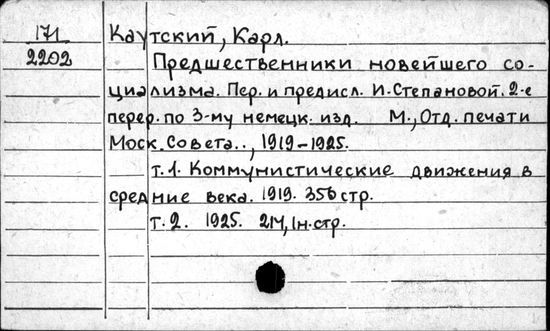 171 Каутский, Карл.
2202 Предшественники новейшего со-
циализма. Пер. и предисл. И. Степановой. 2-е
перер. по 3-му немецк. изд. М., Отд. печати
Моск. Совета.., 1919-1925.
т. 1. Коммунистические движения в
средние века. 1919. 356 стр.
т. 2. 1925. 214, 1н. стр.